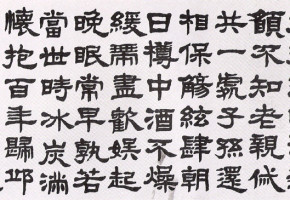 願不知老親戚
共一處子孫還
相保觴絃肆朝
日樽中酒不燥
緩帶盡歡娛起
晚眠常早孰若
當世時冰炭滿
懷抱百年歸邱